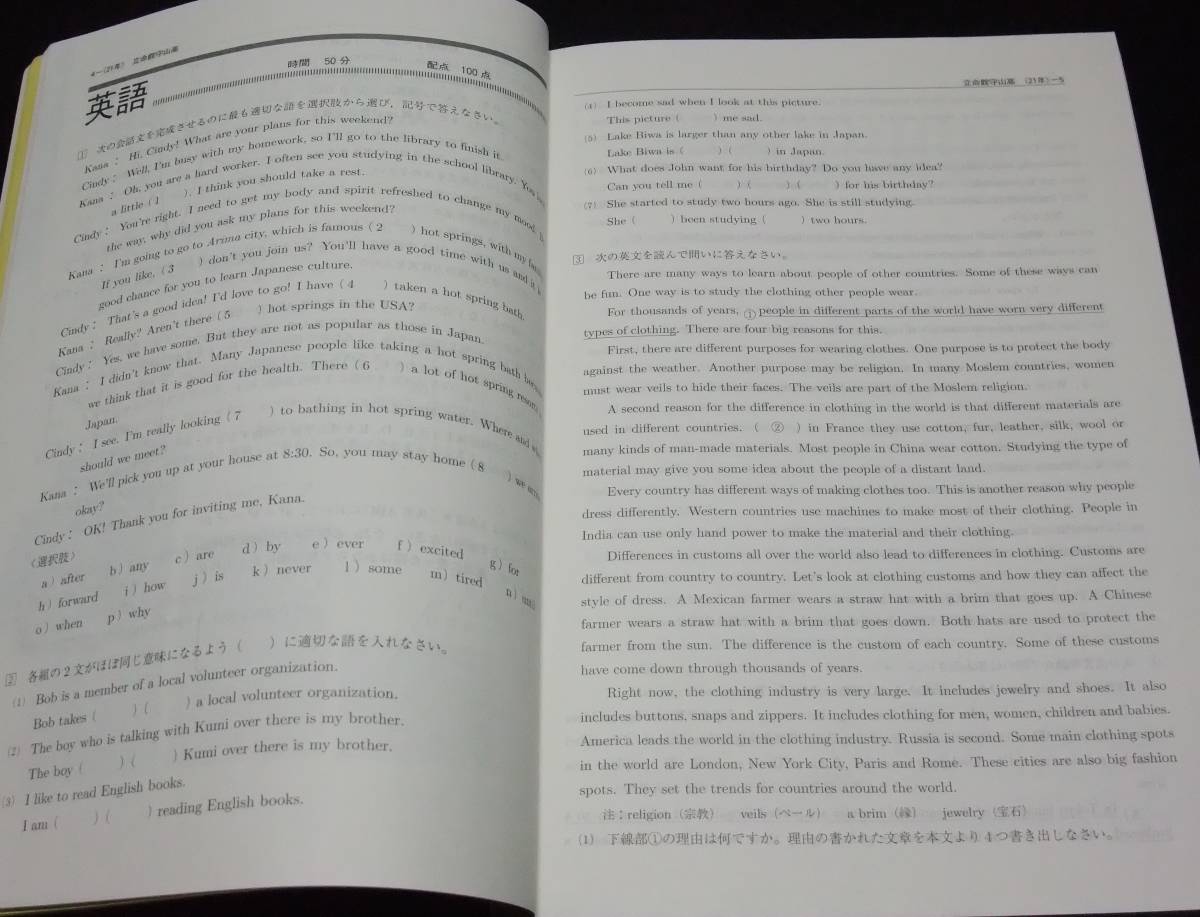 4－(21年) 立命館守山高
英語
時間 50分
配点 100点
1 次の会話文を完成させるのに最も適切な語を選択肢から選び，記号で答えなさい。
Kana : Hi, Cindy! What are your plans for this weekend?
Cindy : Well, I'm busy with my homework, so I'll go to the library to finish it.
Kana : Oh, you are a hard worker. I often see you studying in the school library. You
a little ( 1 ). I think you should take a rest.
Cindy : You're right. I need to get my body and spirit refreshed to change my mood.
the way, why did you ask my plans for this weekend?
Kana : I'm going to go to Arima city, which is famous ( 2 ) hot springs, with my
If you like, ( 3 ) don't you join us? You'll have a good time with us and it
good chance for you to learn Japanese culture.
Cindy : That's a good idea! I'd love to go! I have ( 4 ) taken a hot spring bath.
Kana : Really? Aren't there ( 5 ) hot springs in the USA?
Cindy : Yes, we have some. But they are not as popular as those in Japan.
Kana : I didn't know that. Many Japanese people like taking a hot spring bath
we think that it is good for the health. There ( 6 ) a lot of hot spring
Japan.
Cindy : I see. I'm really looking ( 7 ) to bathing in hot spring water. Where and
should we meet?
Kana : We'll pick you up at your house at 8:30. So, you may stay home ( 8 ) we
okay?
Cindy : OK! Thank you for inviting me, Kana.
〈選択肢〉
a ) after b ) any c ) are d ) by e ) ever f ) excited g ) for
h ) forward i ) how j ) is k ) never l ) some m ) tired n ) until
o ) when p ) why
2 各組の2文がほぼ同じ意味になるよう（ ）に適切な語を入れなさい。
(1) Bob is a member of a local volunteer organization.
Bob takes ( ) ( ) a local volunteer organization.
(2) The boy who is talking with Kumi over there is my brother.
The boy ( ) ( ) Kumi over there is my brother.
(3) I like to read English books.
I am ( ) ( ) reading English books.
立命館守山高 (21年)－5
(4) I become sad when I look at this picture.
This picture ( ) me sad.
(5) Lake Biwa is larger than any other lake in Japan.
Lake Biwa is ( ) ( ) in Japan.
(6) What does John want for his birthday? Do you have any idea?
Can you tell me ( ) ( ) ( ) for his birthday?
(7) She started to study two hours ago. She is still studying.
She ( ) been studying ( ) two hours.
3 次の英文を読んで問いに答えなさい。
There are many ways to learn about people of other countries. Some of these ways can
be fun. One way is to study the clothing other people wear.
For thousands of years, ①people in different parts of the world have worn very different
types of clothing. There are four big reasons for this.
First, there are different purposes for wearing clothes. One purpose is to protect the body
against the weather. Another purpose may be religion. In many Moslem countries, women
must wear veils to hide their faces. The veils are part of the Moslem religion.
A second reason for the difference in clothing in the world is that different materials are
used in different countries. ( ② ) in France they use cotton, fur, leather, silk, wool or
many kinds of man-made materials. Most people in China wear cotton. Studying the type of
material may give you some idea about the people of a distant land.
Every country has different ways of making clothes too. This is another reason why people
dress differently. Western countries use machines to make most of their clothing. People in
India can use only hand power to make the material and their clothing.
Differences in customs all over the world also lead to differences in clothing. Customs are
different from country to country. Let's look at clothing customs and how they can affect the
style of dress. A Mexican farmer wears a straw hat with a brim that goes up. A Chinese
farmer wears a straw hat with a brim that goes down. Both hats are used to protect the
farmer from the sun. The difference is the custom of each country. Some of these customs
have come down through thousands of years.
Right now, the clothing industry is very large. It includes jewelry and shoes. It also
includes buttons, snaps and zippers. It includes clothing for men, women, children and babies.
America leads the world in the clothing industry. Russia is second. Some main clothing spots
in the world are London, New York City, Paris and Rome. These cities are also big fashion
spots. They set the trends for countries around the world.
注：religion（宗教） veils（ベール） a brim（縁） jewelry（宝石）
(1) 下線部①の理由は何ですか。理由の書かれた文章を本文より4つ書き出しなさい。